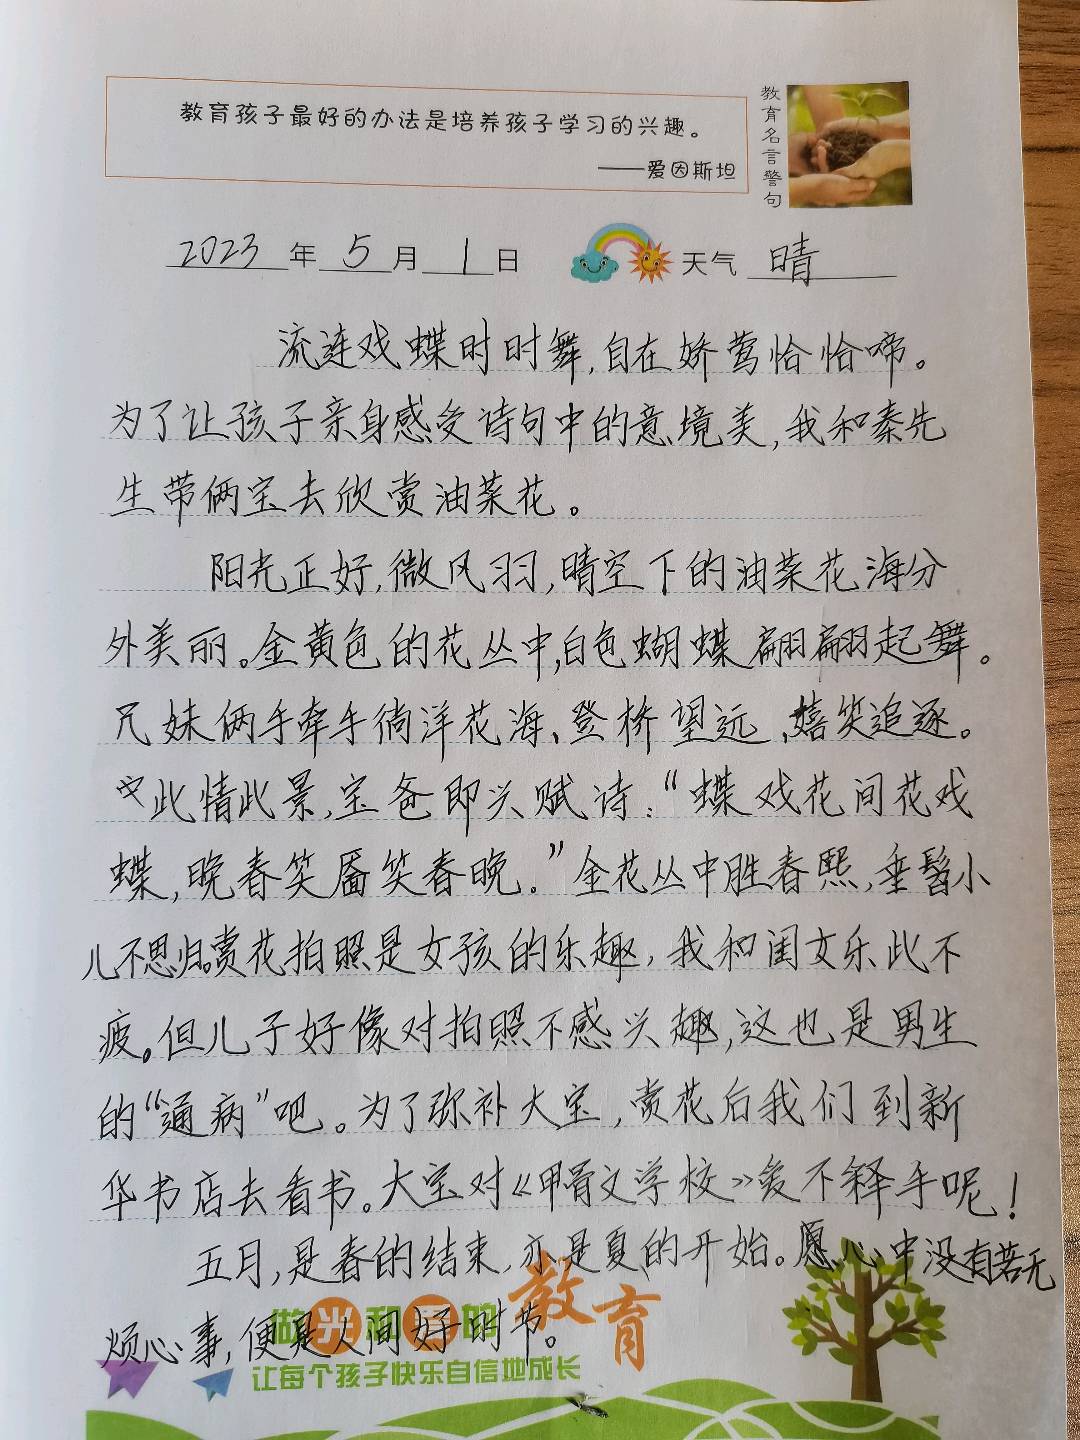 教育孩子最好的办法是培养孩子学习的兴趣。
——爱因斯坦
教育名言警句
2023年5月1日 天气 晴
流连戏蝶时时舞,自在娇莺恰恰啼。
为了让孩子亲身感受诗句中的意境美,我和秦先
生带俩宝去欣赏油菜花。
阳光正好,微风羽,晴空下的油菜花海分
外美丽。金黄色的花丛中,白色蝴蝶翩翩起舞。
兄妹俩手牵手徜洋花海、登桥望远、嬉笑追逐。
此情此景,宝爸即兴赋诗:“蝶戏花间花戏
蝶,晚春笑靥笑春晚。”金花丛中胜春熙,垂髫小
儿不思归。赏花拍照是女孩的乐趣,我和闺女乐此不
疲。但儿子好像对拍照不感兴趣,这也是男生
的“通病”吧。为了弥补大宝,赏花后我们到新
华书店去看书。大宝对《甲骨文学校》爱不释手呢!
五月,是春的结束,亦是夏的开始。愿心中没有若无
烦心事,便是人间好时节。
做光和 的教育
让每个孩子快乐自信地成长